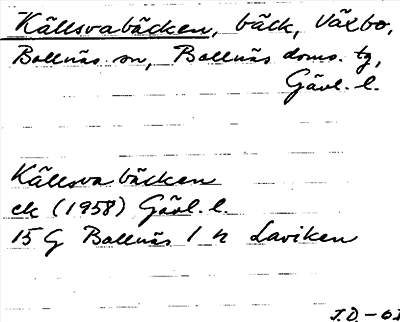 Källsvabäcken, bäck, Växbo,
Bollnäs sn, Bollnäs doms. tg,
Gävl. l.
Källsvabäcken
ek (1958) Gävl. l.
15 G Bollnäs 1 n Laviken
J.D. -61